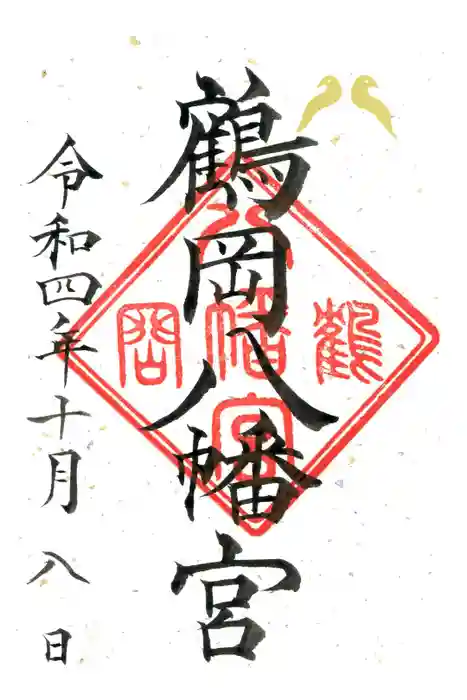 鶴岡八幡宮
鶴岡
八幡宮
令和四年十月八日